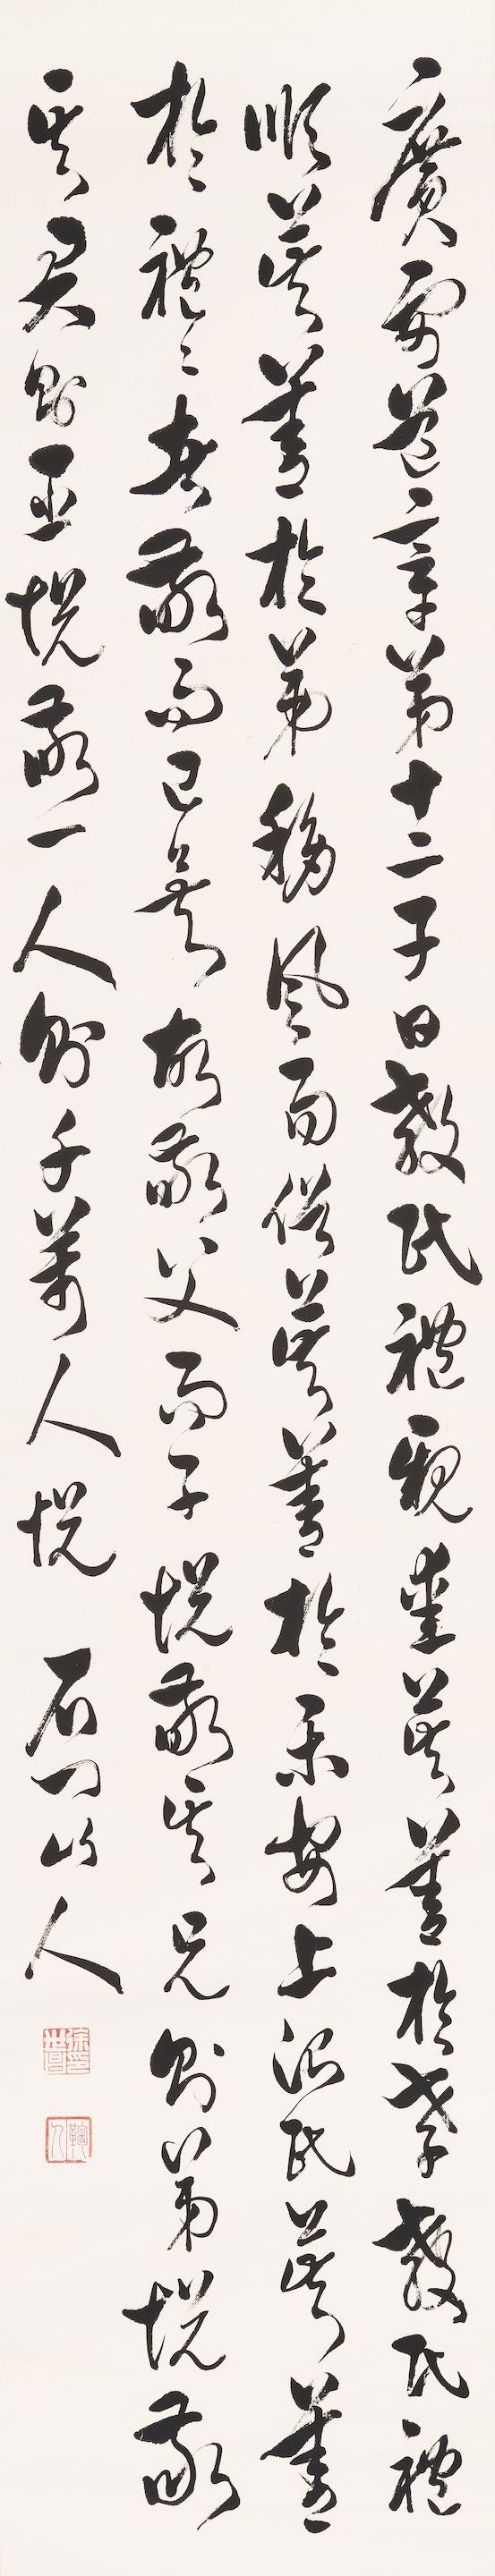 廣要道章第十二子曰教民禮親愛莫善於孝教民禮
順莫善於弟移風而俗莫善於樂安上治民莫善
於禮々者敬而已矣故敬父而子悅敬其兄則弟悅敬
其君則臣悅敬一人則千萬人悅 石門山人
徐印世昌
鞠人